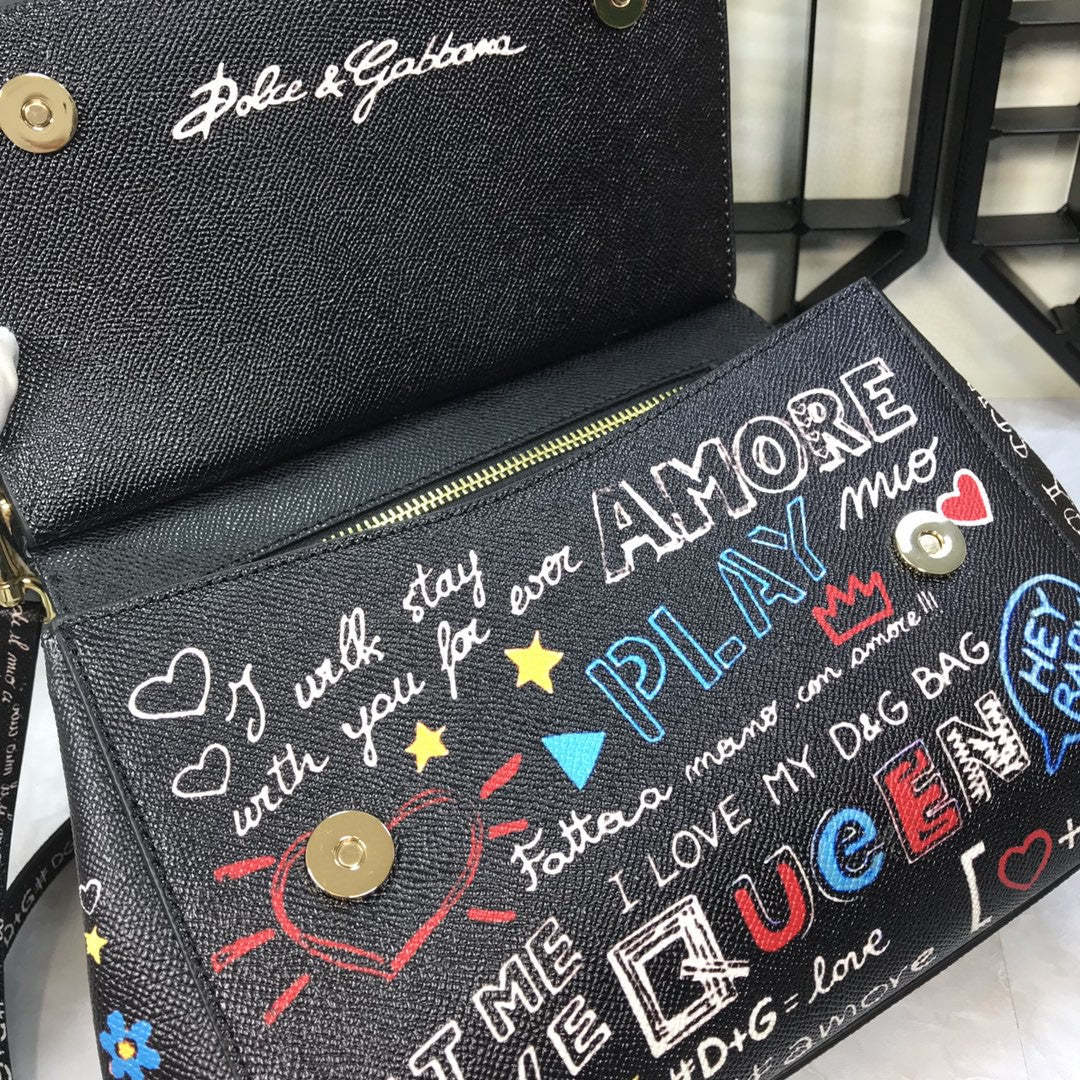 Dolce & Gabbana
I will stay
with you for ever
AMORE
mio
PLAY
Fatto a mano con amore!!!
I LOVE MY D&G BAG
HEY
QUeEN
ME
#D+G=love
amore
D+G#